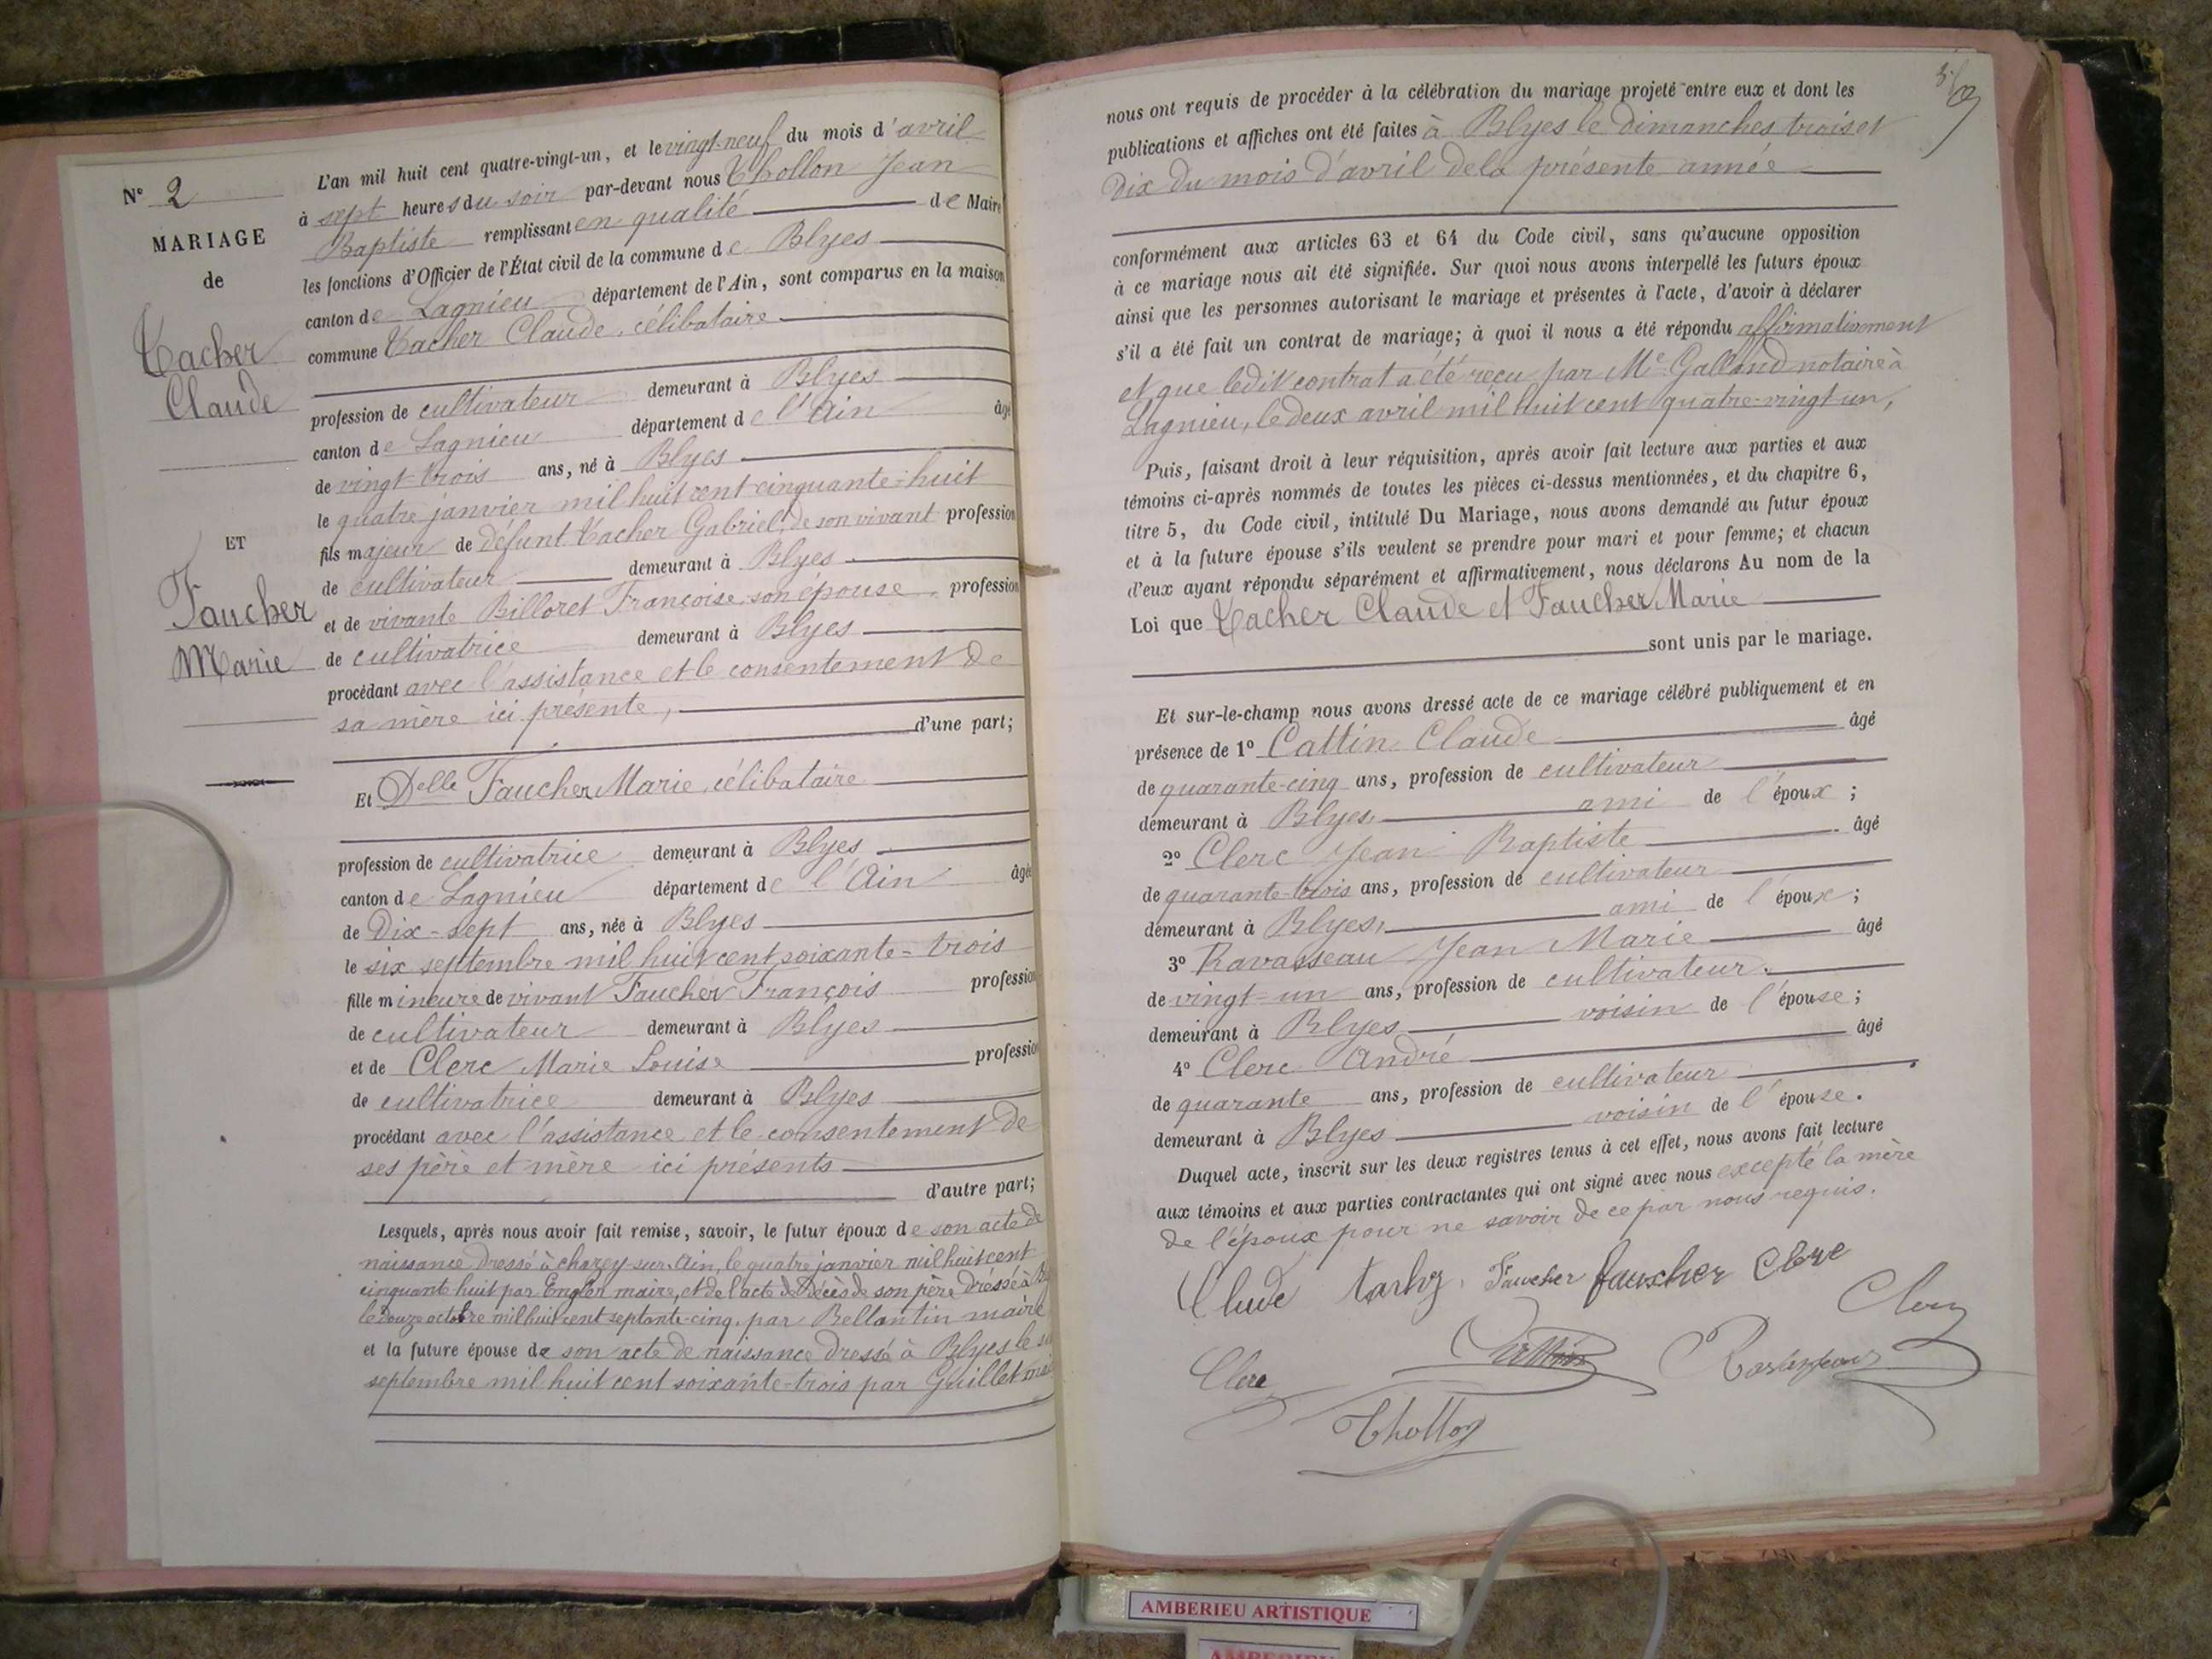 N° 2
MARIAGE
de
Tacher
Claude
ET
Faucher
Marie
L'an mil huit cent quatre-vingt-un, et le vingt-neuf du mois d'avril
à sept heures du soir par-devant nous Thollon Jean
Baptiste remplissant en qualité de Maire
les fonctions d'Officier de l'État civil de la commune de Blyes
canton de Lagnieu département de l'Ain, sont comparus en la maison
commune Tacher Claude, célibataire
profession de cultivateur demeurant à Blyes
canton de Lagnieu département de l'Ain âgé
de vingt-trois ans, né à Blyes
le quatre janvier mil huit cent cinquante-huit
fils majeur de défunt Tacher Gabriel, de son vivant profession
de cultivateur demeurant à Blyes
et de vivante Billoret Françoise, son épouse, profession
de cultivatrice demeurant à Blyes
procédant avec l'assistance et le consentement de
sa mère ici présente,
d'une part;
Et Delle Faucher Marie, célibataire
profession de cultivatrice demeurant à Blyes
canton de Lagnieu département de l'Ain âgée
de Dix-sept ans, née à Blyes
le six septembre mil huit cent soixante-trois
fille mineure de vivant Faucher François profession
de cultivateur demeurant à Blyes
et de Clerc Marie Louise profession
de cultivatrice demeurant à Blyes
procédant avec l'assistance et le consentement de
ses père et mère ici présents
d'autre part;
Lesquels, après nous avoir fait remise, savoir, le futur époux de son acte de
naissance dressé à charey-sur-Ain, le quatre janvier mil huit cent
cinquante huit par Engler maire, et de l'acte de décès de son père dressé à
le douze octobre mil huit cent septante-cinq, par Bellantin maire
et la future épouse de son acte de naissance dressé à Blyes le
septembre mil huit cent soixante-trois par Guillet
nous ont requis de procéder à la célébration du mariage projeté entre eux et dont les
publications et affiches ont été faites à Blyes le dimanches trois et
dix du mois d'avril de la présente année
conformément aux articles 63 et 64 du Code civil, sans qu'aucune opposition
à ce mariage nous ait été signifiée. Sur quoi nous avons interpellé les futurs époux
ainsi que les personnes autorisant le mariage et présentes à l'acte, d'avoir à déclarer
s'il a été fait un contrat de mariage; à quoi il nous a été répondu affirmativement
et que ledit contrat a été reçu par Me Galland notaire à
Lagnieu, le deux avril mil huit cent quatre-vingt-un,
Puis, faisant droit à leur réquisition, après avoir fait lecture aux parties et aux
témoins ci-après nommés de toutes les pièces ci-dessus mentionnées, et du chapitre 6,
titre 5, du Code civil, intitulé Du Mariage, nous avons demandé au futur époux
et à la future épouse s'ils veulent se prendre pour mari et pour femme; et chacun
d'eux ayant répondu séparément et affirmativement, nous déclarons Au nom de la
Loi que Tacher Claude et Faucher Marie
sont unis par le mariage.
Et sur-le-champ nous avons dressé acte de ce mariage célébré publiquement et en
présence de 1° Cattin Claude âgé
de quarante-cinq ans, profession de cultivateur
demeurant à Blyes, ami de l'époux;
2° Clerc Jean Baptiste âgé
de quarante-trois ans, profession de cultivateur
demeurant à Blyes, ami de l'époux;
3° Ravasseau Jean Marie âgé
de vingt-un ans, profession de cultivateur.
demeurant à Blyes voisin de l'épouse;
4° Clerc André âgé
de quarante ans, profession de cultivateur
demeurant à Blyes voisin de l'épouse.
Duquel acte, inscrit sur les deux registres tenus à cet effet, nous avons fait lecture
aux témoins et aux parties contractantes qui ont signé avec nous excepté la mère
de l'époux pour ne savoir de ce par nous requis.
Faucher faucher Clerc
Clerc
Clerc
Thollon
AMBERIEU ARTISTIQUE
AMBERIEU